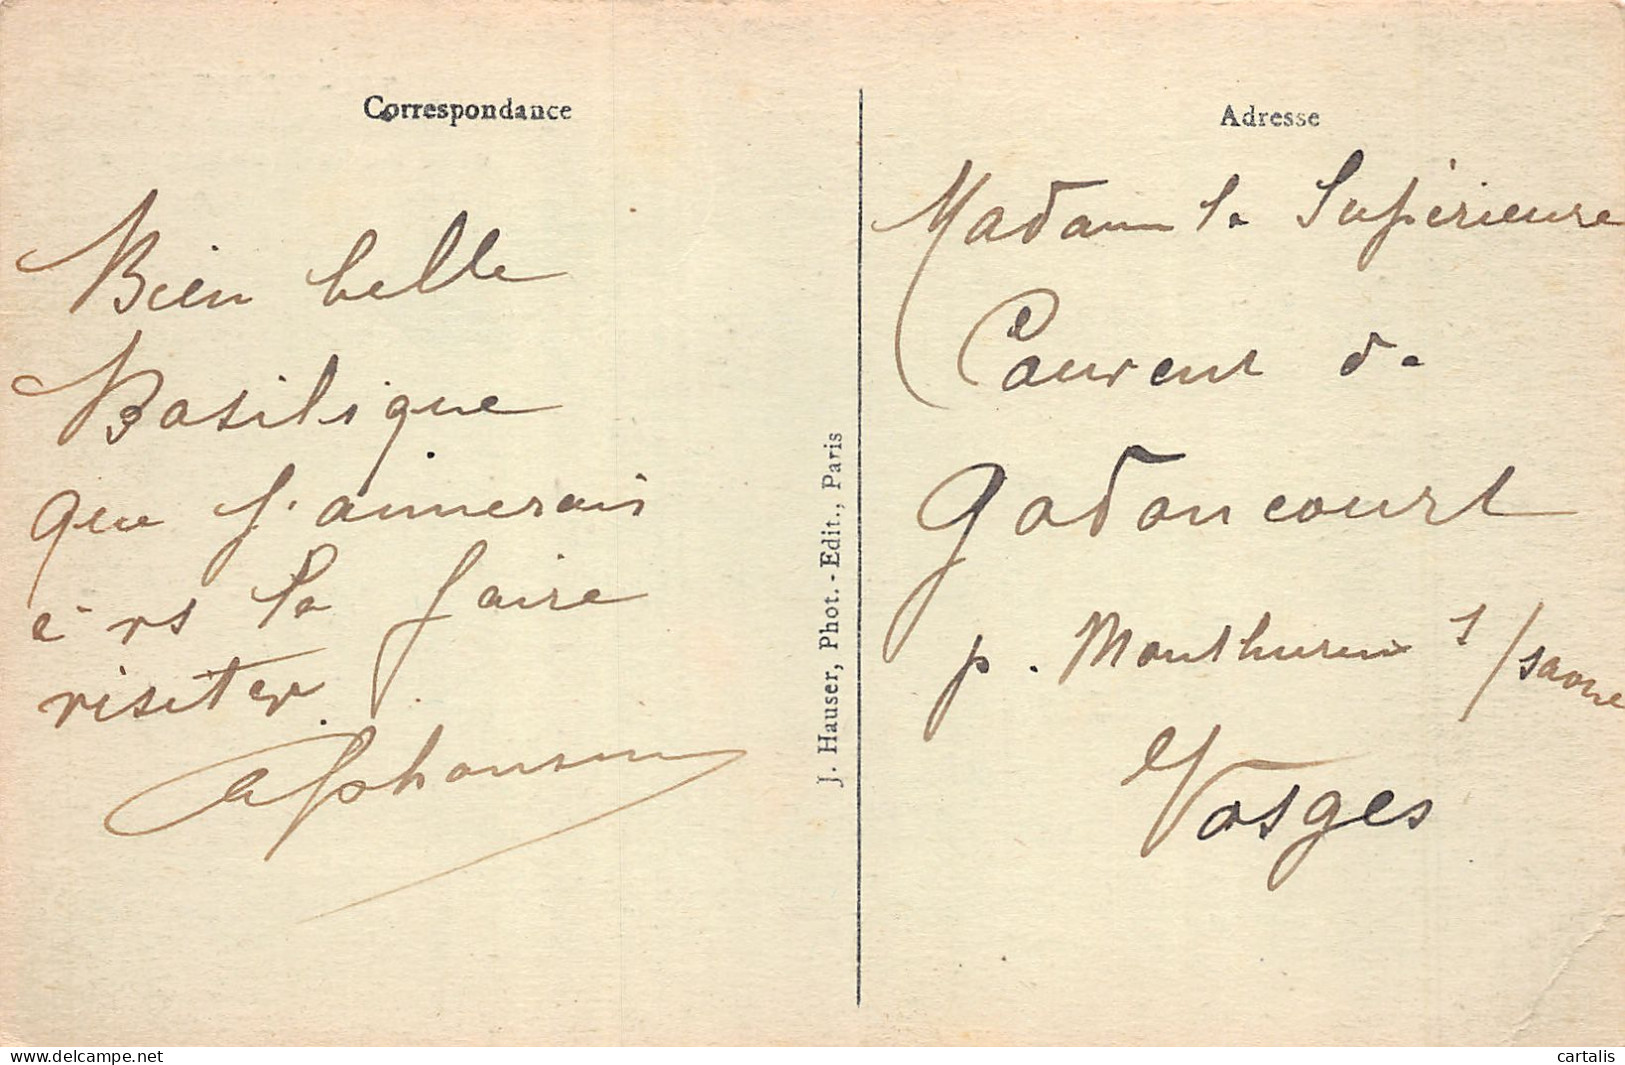 Correspondance
Bien belle
Basilique
que j'aimerais
à vs la faire
visiter
Alphonsine
J. Hauser, Phot.-Edit., Paris
Adresse
Madame la Supérieure
Couvent de
Godoncourt
p. Monthureux s/saone
Vosges
www.delcampe.net
cartalis